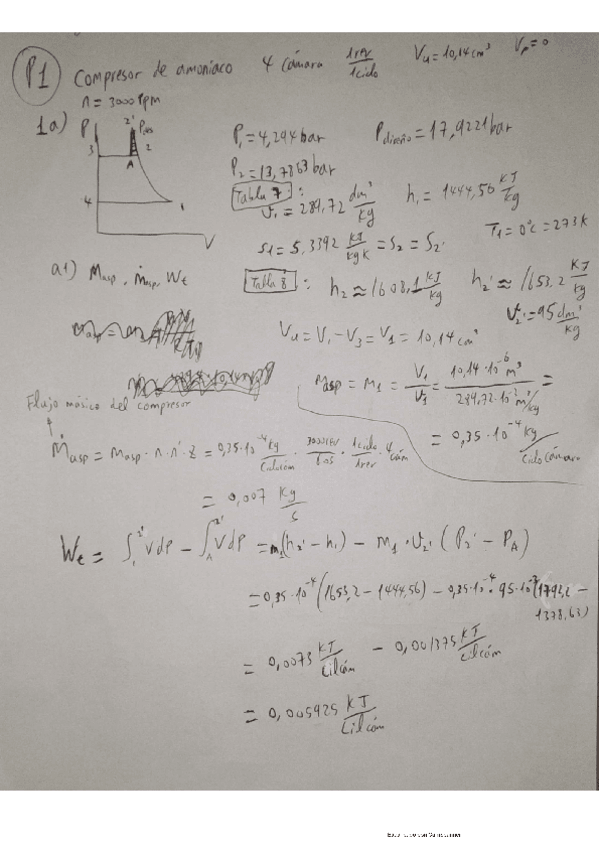 P1 Compresor de amoniaco 4 cámara 1rev/1ciclo Vu=10,14cm³ Vp=0
n = 3000 rpm
1a) P 2' Pdes
3 A 2
4 1
V
P1=4,294bar Pdiseño=17,9221bar
P2=13,7863bar
Tabla 7: v1=289,72 dm³/kg h1=1444,56 KJ/kg
T1=0°C=273K
s1=5,3392 KJ/kgK = s2 = s2'
a1) masp, ṁasp, Wt
Tabla 8: h2≈1608,1 KJ/kg h2'≈1653,2 KJ/kg
v2'=95 dm³/kg
Vu=V1-V3=V1=10,14cm³
masp=m1=V1/v1=10,14·10⁻⁶m³/289,72·10⁻³m³/kg=
= 0,35·10⁻⁴ kg/ciclo cámara
Flujo másico del compresor
ṁasp = masp·n·n'·z = 0,35·10⁻⁴ kg/ciclcám · 3000rev/60s · 1ciclo/1rev · 4cám
= 0,007 kg/s
Wt = ∫₁²' Vdp - ∫A²' Vdp = m1(h2'-h1) - m1·v2'(P2'-PA)
=0,35·10⁻⁴(1653,2-1444,56) - 0,35·10⁻⁴·95·10⁻³(1792,2-
1378,63)
= 0,0073 KJ/ciclcám - 0,001375 KJ/ciclcám
= 0,005925 KJ/ciclcám